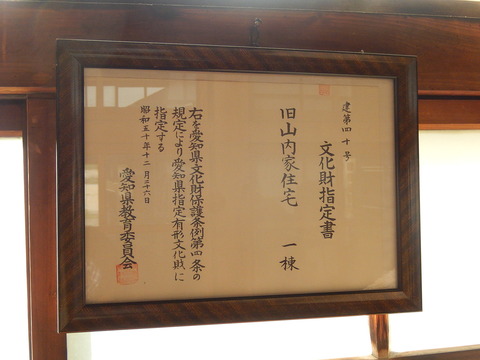 建第四十号
文化財指定書
旧山内家住宅 一棟
右を愛知県文化財保護条例第四条の
規定により愛知県指定有形文化財に
指定する
昭和五十年十二月二十六日
愛知県教育委員会